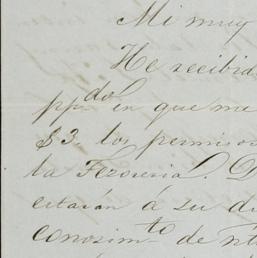 Mi muy
He recibid
pp.do en que me
$3. los permisos
la Tezoreria. D
estarán á su di
conosim.to de